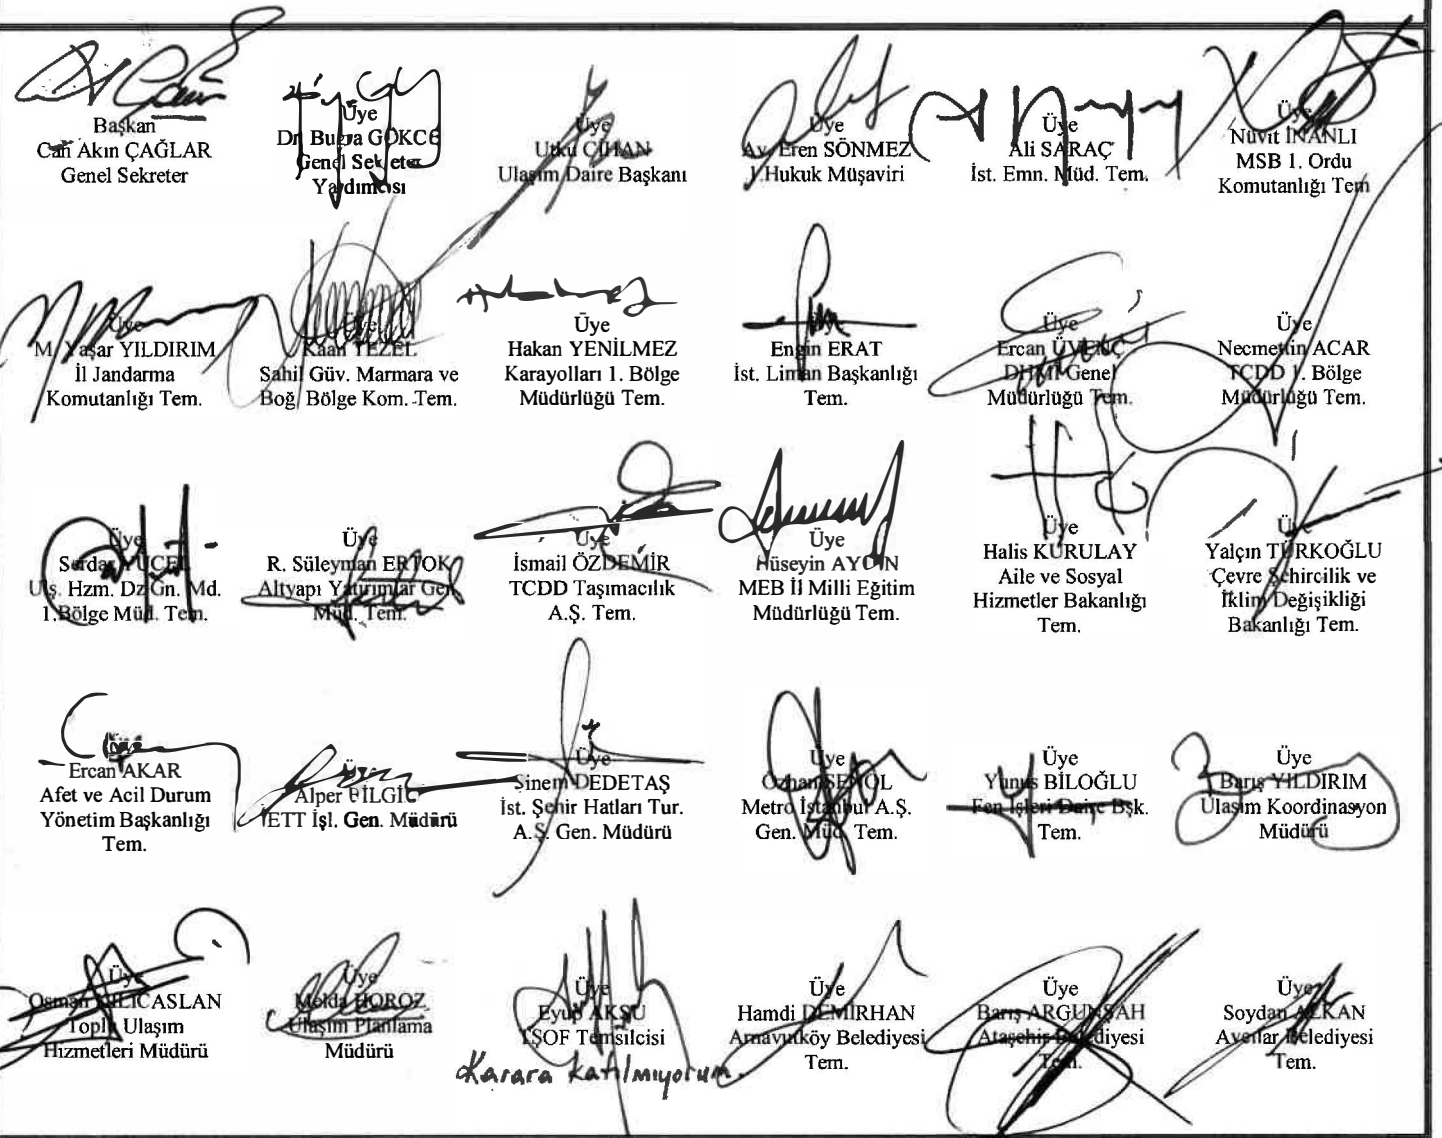 Başkan
Can Akın ÇAĞLAR
Genel Sekreter
Üye
Dr. Buğra GÖKCE
Genel Sekreter
Yardımcısı
Üye
Utku CİHAN
Ulaşım Daire Başkanı
Üye
Av. Eren SÖNMEZ
1.Hukuk Müşaviri
Üye
Ali SARAÇ
İst. Emn. Müd. Tem.
Üye
Nüvit İNANLI
MSB 1. Ordu
Komutanlığı Tem
Üye
M. Yaşar YILDIRIM
İl Jandarma
Komutanlığı Tem.
Üye
Kaan TEZEL
Sahil Güv. Marmara ve
Boğ. Bölge Kom. Tem.
Üye
Hakan YENİLMEZ
Karayolları 1. Bölge
Müdürlüğü Tem.
Üye
Engin ERAT
İst. Liman Başkanlığı
Tem.
Üye
Ercan
DHMİ Genel
Müdürlüğü Tem.
Üye
Necmettin ACAR
TCDD 1. Bölge
Müdürlüğü Tem.
Üye
Serdar YÜCEL
Ulş. Hzm. Dz Gn. Md.
1.Bölge Müd. Tem.
Üye
R. Süleyman ERTOK
Altyapı Yatırımlar Gen.
Müd. Tem.
Üye
İsmail ÖZDEMİR
TCDD Taşımacılık
A.Ş. Tem.
Üye
Hüseyin AYDIN
MEB İl Milli Eğitim
Müdürlüğü Tem.
Üye
Halis KURULAY
Aile ve Sosyal
Hizmetler Bakanlığı
Tem.
Üye
Yalçın TÜRKOĞLU
Çevre Şehircilik ve
İklim Değişikliği
Bakanlığı Tem.
Üye
Ercan AKAR
Afet ve Acil Durum
Yönetim Başkanlığı
Tem.
Üye
Alper BİLGİLİ
İETT İşl. Gen. Müdürü
Üye
Sinem DEDETAŞ
İst. Şehir Hatları Tur.
A.Ş. Gen. Müdürü
Üye
Özhan ŞENOL
Metro İstanbul A.Ş.
Gen. Müd. Tem.
Üye
Yunus BİLOĞLU
Fen İşleri Daire Bşk.
Tem.
Üye
Barış YILDIRIM
Ulaşım Koordinasyon
Müdürü
Üye
Osman KILIÇASLAN
Toplu Ulaşım
Hizmetleri Müdürü
Üye
Melda HOROZ
Ulaşım Planlama
Müdürü
Üye
Eyüp AKSU
TŞOF Temsilcisi
Karara katılmıyorum.
Üye
Hamdi DEMİRHAN
Arnavutköy Belediyesi
Tem.
Üye
Barış ARGUNŞAH
Ataşehir Belediyesi
Tem.
Üye
Soydan ALKAN
Avcılar Belediyesi
Tem.